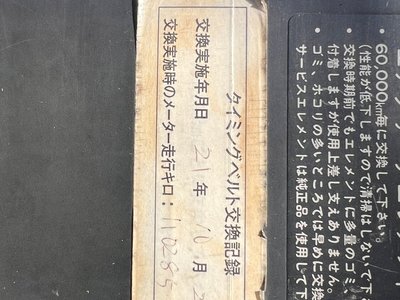 タイミングベルト交換記録
交換実施年月日 21年 10月 2
交換実施時のメーター走行キロ：110285
・60,000km毎に交換して下さい。
(性能が低下しますので清掃はしないで下
・交換時期前でもエレメントに多量のゴミ、
付着しますが使用上差し支えありません。
ゴミ、ホコリの多いところでは早めに交換
サービスエレメントは純正品を使用して下